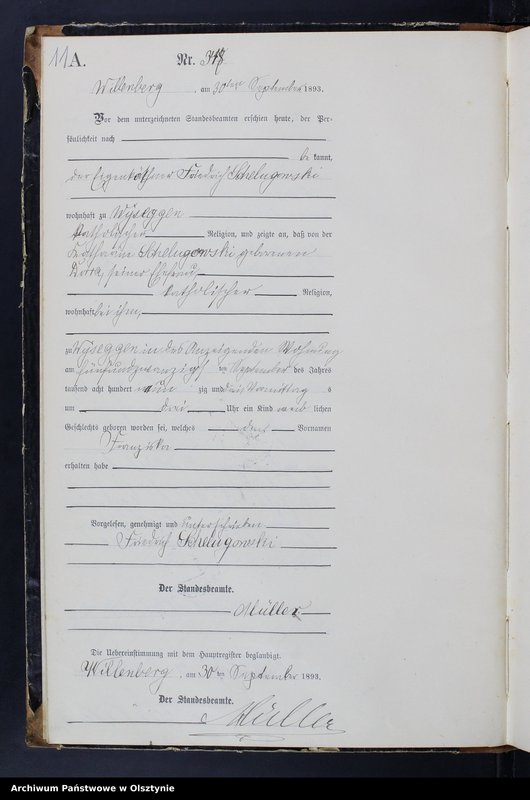 11 A.
Nr. 348
Willenberg, am 30ten September 1893.
Vor dem unterzeichneten Standesbeamten erschien heute, der Per-
sönlichkeit nach
be kannt,
der Eigenkäthner Friedrich Schelugowski
wohnhaft zu Wyseggen
katholischer Religion, und zeigte an, daß von der
Katharine Schelugowski, geborenen
seiner Ehefrau,
katholischer Religion,
wohnhaft bei ihm,
zu Wyseggen in des Anzeigenden Wohnung
am fünfundzwanzigsten September des Jahres
tausend acht hundert neun zig und drei Vormittag s
um drei Uhr ein Kind weib lichen
Geschlechts geboren worden sei, welches den Vornamen
Franziska
erhalten habe
Vorgelesen, genehmigt und unterschrieben
Friedrich Schelugowski
Der Standesbeamte.
Müller
Die Uebereinstimmung mit dem Hauptregister beglaubigt.
Willenberg, am 30ten September 1893.
Der Standesbeamte.
Müller
Archiwum Państwowe w Olsztynie